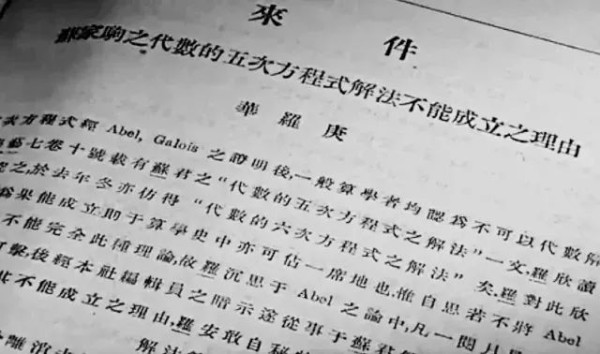 來件
蘇家駒之代數的五次方程式解法不能成立之理由
華羅庚
次方程式經 Abel, Galois 之證明後,一般算學者均認爲不可以代數解
藝七卷十號載有蘇君之“代數的五次方程式之解法”一文,羅欣讀
之,於去年冬亦仿得“代數的六次方程式之解法”矣,羅對此欣
果能成立則于算學史中亦可佔一席地也,惟自思若不將 Abel
不能完全此種理論,故羅沉思于 Abel 之論中,凡一閱月
擊,後經本社編輯員之暗示遂從事于蘇君
不能成立之理由,羅安敢自秘
解法
離濱